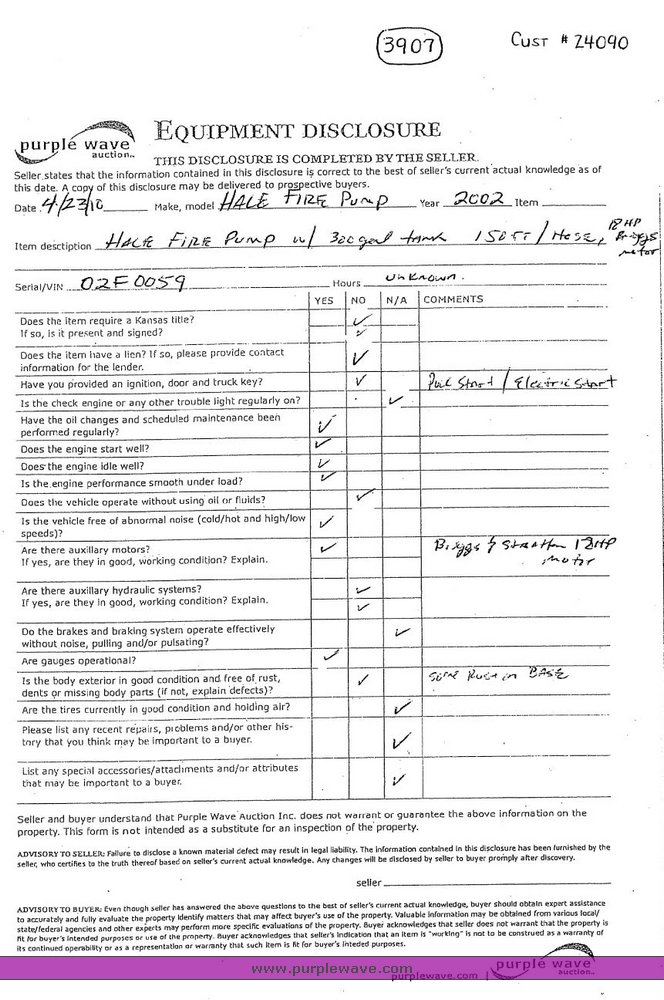 3907
CUST # 24090
purple wave
auction™
EQUIPMENT DISCLOSURE
THIS DISCLOSURE IS COMPLETED BY THE SELLER.
Seller states that the information contained in this disclosure is correct to the best of seller's current actual knowledge as of
this date. A copy of this disclosure may be delivered to prospective buyers.
Date 4/23/10 Make, model HALE FIRE PUMP Year 2002 Item
Item desctiption HALE FIRE PUMP w/ 300 gal tank 150 FT / Hose, 18 HP Briggs motor
Serial/VIN 02F0059 Hours unknown.
YES NO N/A COMMENTS
Does the item require a Kansas title?
If so, is it present and signed?
Does the item have a lien? If so, please provide contact
information for the lender.
Have you provided an ignition, door and truck key? Pull Start / Electric Start
Is the check engine or any other trouble light regularly on?
Have the oil changes and scheduled maintenance been
performed regularly?
Does the engine start well?
Does the engine idle well?
Is the engine performance smooth under load?
Does the vehicle operate without using oil or fluids?
Is the vehicle free of abnormal noise (cold/hot and high/low
speeds)?
Are there auxillary motors? Briggs & Stratton 18HP
If yes, are they in good, working condition? Explain. motor
Are there auxillary hydraulic systems?
If yes, are they in good, working condition? Explain.
Do the brakes and braking system operate effectively
without noise, pulling and/or pulsating?
Are gauges operational?
Is the body exterior in good condition and free of rust, some Rust on BASE
dents or missing body parts (if not, explain defects)?
Are the tires currently in good condition and holding air?
Please list any recent repairs, problems and/or other his-
tory that you think may be important to a buyer.
List any special accessories/attachments and/or attributes
that may be important to a buyer.
Seller and buyer understand that Purple Wave Auction Inc. does not warrant or guarantee the above information on the
property. This form is not intended as a substitute for an inspection of the property.
ADVISORY TO SELLER: Failure to disclose a known material defect may result in legal liability. The information contained in this disclosure has been furnished by the
seller, who certifies to the truth thereof based on seller's current actual knowledge. Any changes will be disclosed by seller to buyer promply after discovery.
seller
ADVISORY TO BUYER: Even though seller has answered the above questions to the best of seller's current actual knowledge, buyer should obtain expert assistance
to accurately and fully evaluate the property identify matters that may affect buyer's use of the property. Valuable information may be obtained from various local/
state/federal agencies and other experts may perform more specific evaluations of the property. Buyer acknowledges that seller does not warrant that the property is
fit for buyer's intended purposes or use of the property. Buyer acknowledges that seller's indication that an item is "working" is not to be construed as a warranty of
its continued operability or as a representation or warranty that such item is fit for buyer's inteded purposes.
www.purplewave.com
purplewave.com
purple wave
auction™